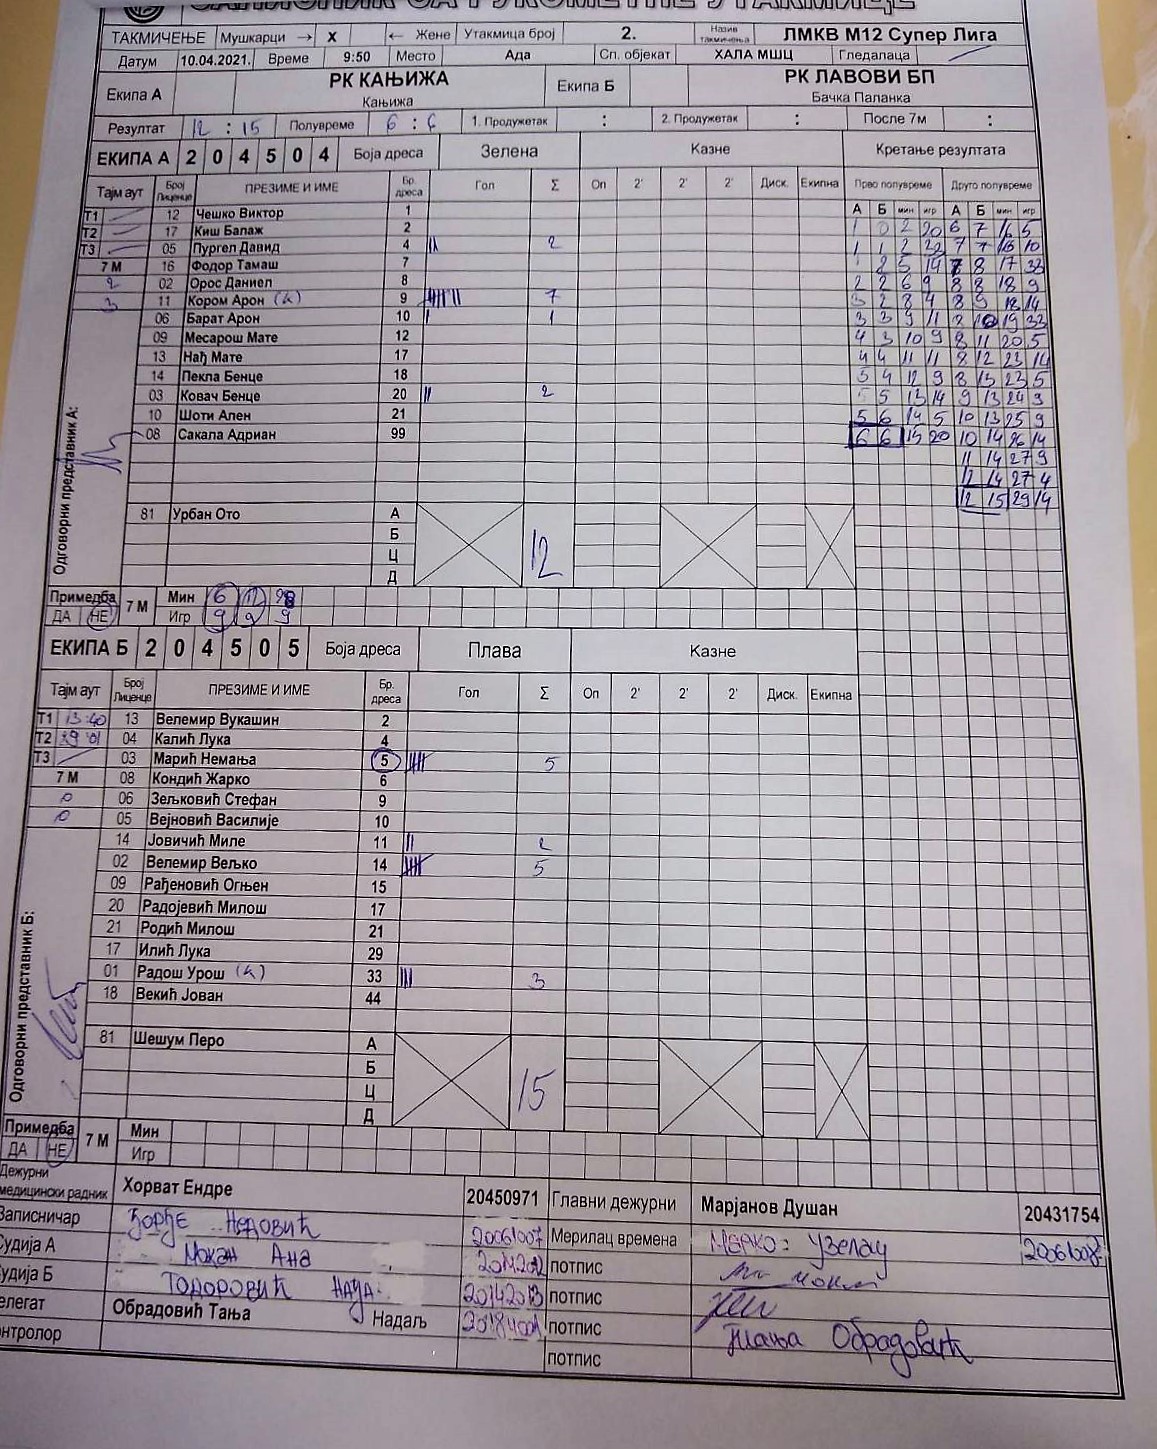 ЗАПИСНИК СА РУКОМЕТНЕ УТАКМИЦЕ
ТАКМИЧЕЊЕ Мушкарци → X ← Жене Утакмица број 2. Назив такмичења ЛМКВ М12 Супер Лига
Датум 10.04.2021. Време 9:50 Место Ада Сп. објекат ХАЛА МШЦ Гледалаца
Екипа А РК КАЊИЖА Кањижа Екипа Б РК ЛАВОВИ БП Бачка Паланка
Резултат 12 : 15 Полувреме 6 : 6 1. Продужетак : 2. Продужетак : После 7м :
ЕКИПА А 2 0 4 5 0 4 Боја дреса Зелена Казне Кретање резултата
Тајм аут Број Лиценце ПРЕЗИМЕ И ИМЕ Бр. дреса Гол Σ Оп 2' 2' 2' Диск. Екипна Прво полувреме Друго полувреме
А Б мин игр А Б мин игр
Т1 12 Чешко Виктор 1
Т2 17 Киш Балаж 2 1 0 2 20 6 7 16 5
Т3 05 Пургел Давид 4 || 2 1 1 2 22 7 7 16 10
7 М 16 Фодор Тамаш 7 2 5 14 7 8 17 33
2 02 Орос Даниел 8 2 2 6 9 8 8 18 9
3 11 Кором Арон (К) 9 7 3 2 8 4 8 9 18 14
06 Барат Арон 10 | 1 3 3 9 11 8 10 19 33
09 Месарош Мате 12 4 3 10 9 8 11 20 5
13 Нађ Мате 17 4 4 11 11 8 12 23 14
14 Пекла Бенце 18 5 4 12 9 8 13 23 5
03 Ковач Бенце 20 || 2 5 5 13 14 9 13 24 9
10 Шоти Ален 21 5 6 14 5 10 13 25 9
08 Сакала Адриан 99 6 6 15 20 10 14 26 14
11 14 27 9
12 14 27 4
12 15 29 14
Одговорни представник А:
81 Урбан Ото А
Б
Ц
Д
12
Примедба ДА НЕ 7 М Мин 6 11 28
Игр 9 9 9
ЕКИПА Б 2 0 4 5 0 5 Боја дреса Плава Казне
Тајм аут Број Лиценце ПРЕЗИМЕ И ИМЕ Бр. дреса Гол Σ Оп 2' 2' 2' Диск. Екипна
Т1 13:40 13 Велемир Вукашин 2
Т2 29:01 04 Калић Лука 4
Т3 03 Марић Немања 5 5
7 М 08 Кондић Жарко 6
0 06 Зељковић Стефан 9
0 05 Вејновић Василије 10
14 Јовичић Миле 11 || 2
02 Велемир Вељко 14 5
09 Рађеновић Огњен 15
20 Радојевић Милош 17
21 Родић Милош 21
17 Илић Лука 29
01 Радош Урош (К) 33 ||| 3
18 Векић Јован 44
Одговорни представник Б:
81 Шешум Перо А
Б
Ц
Д
15
Примедба ДА НЕ 7 М Мин
Игр
Дежурни медицински радник Хорват Ендре 20450971 Главни дежурни Марјанов Душан 20431754
Записничар Ђорђе Недовић 20061007 Мерилац времена Марко Узелац 20061008
Судија А Мокан Ана потпис
Судија Б Тодоровић Нада 20142013 потпис
Делегат Обрадовић Тања Надаљ 20184001 потпис Тања Обрадовић
Контролор потпис